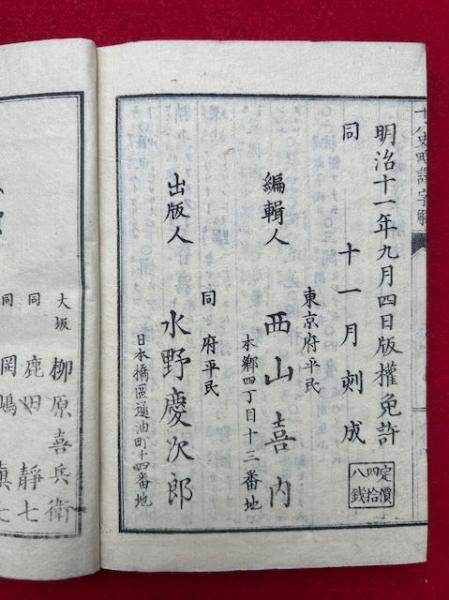 十八史略譯字解
明治十一年九月四日版權免許
同 十一月刺成
定價
四拾
八銭
東京府平民
編輯人 西山喜内
本郷四丁目十三番地
同 府平民
出版人 水野慶次郎
日本橋區通油町十四番地
大坂 柳原喜兵衛
同 鹿田静七
同 岡嶋真七